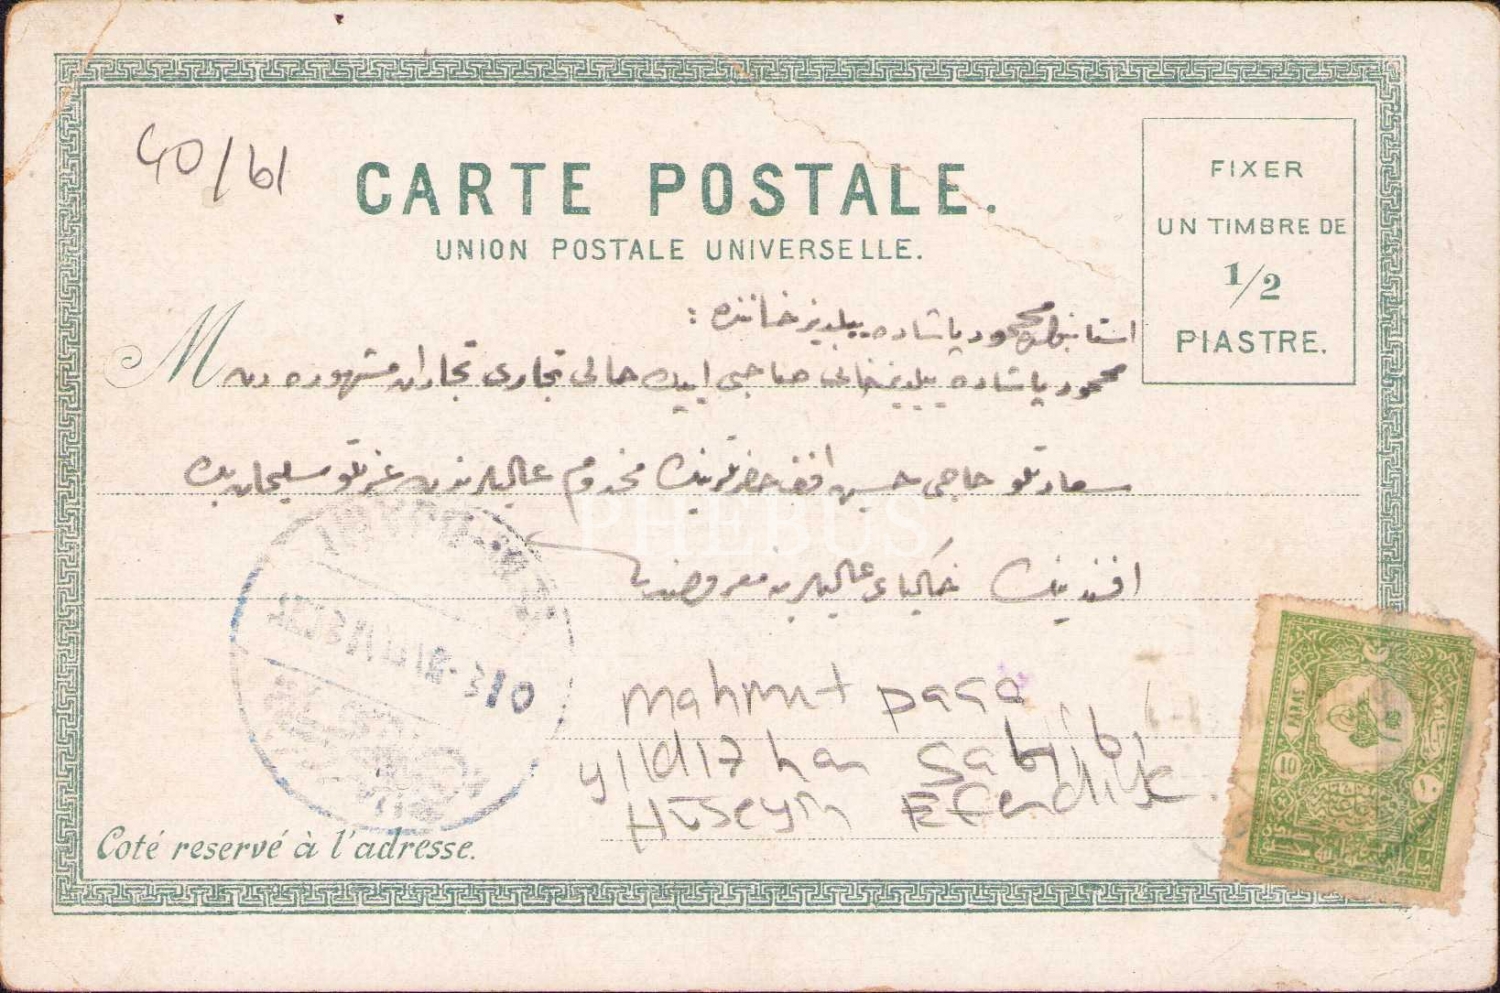 40/61
CARTE POSTALE.
UNION POSTALE UNIVERSELLE.
FIXER
UN TIMBRE DE
1/2
PIASTRE.
M
استانبولده محمود پاشاده ییلدیز خاننده :
محمود پاشاده ییلدیز خانی صاحبی تجاری تجاران مشهوره دن
سعادتلو حاجی حسین افندی حضرتلرینك مخدوم عالیلرندن عزتلو سلیمان بك
افندینك خاكپای عالیلرینه معروضدر
PHEBUS
mahmut paşa
yıldızhan Sahibi
Hüseyin Efendi
Coté reservé à l'adresse.
PARAS
10
١٠